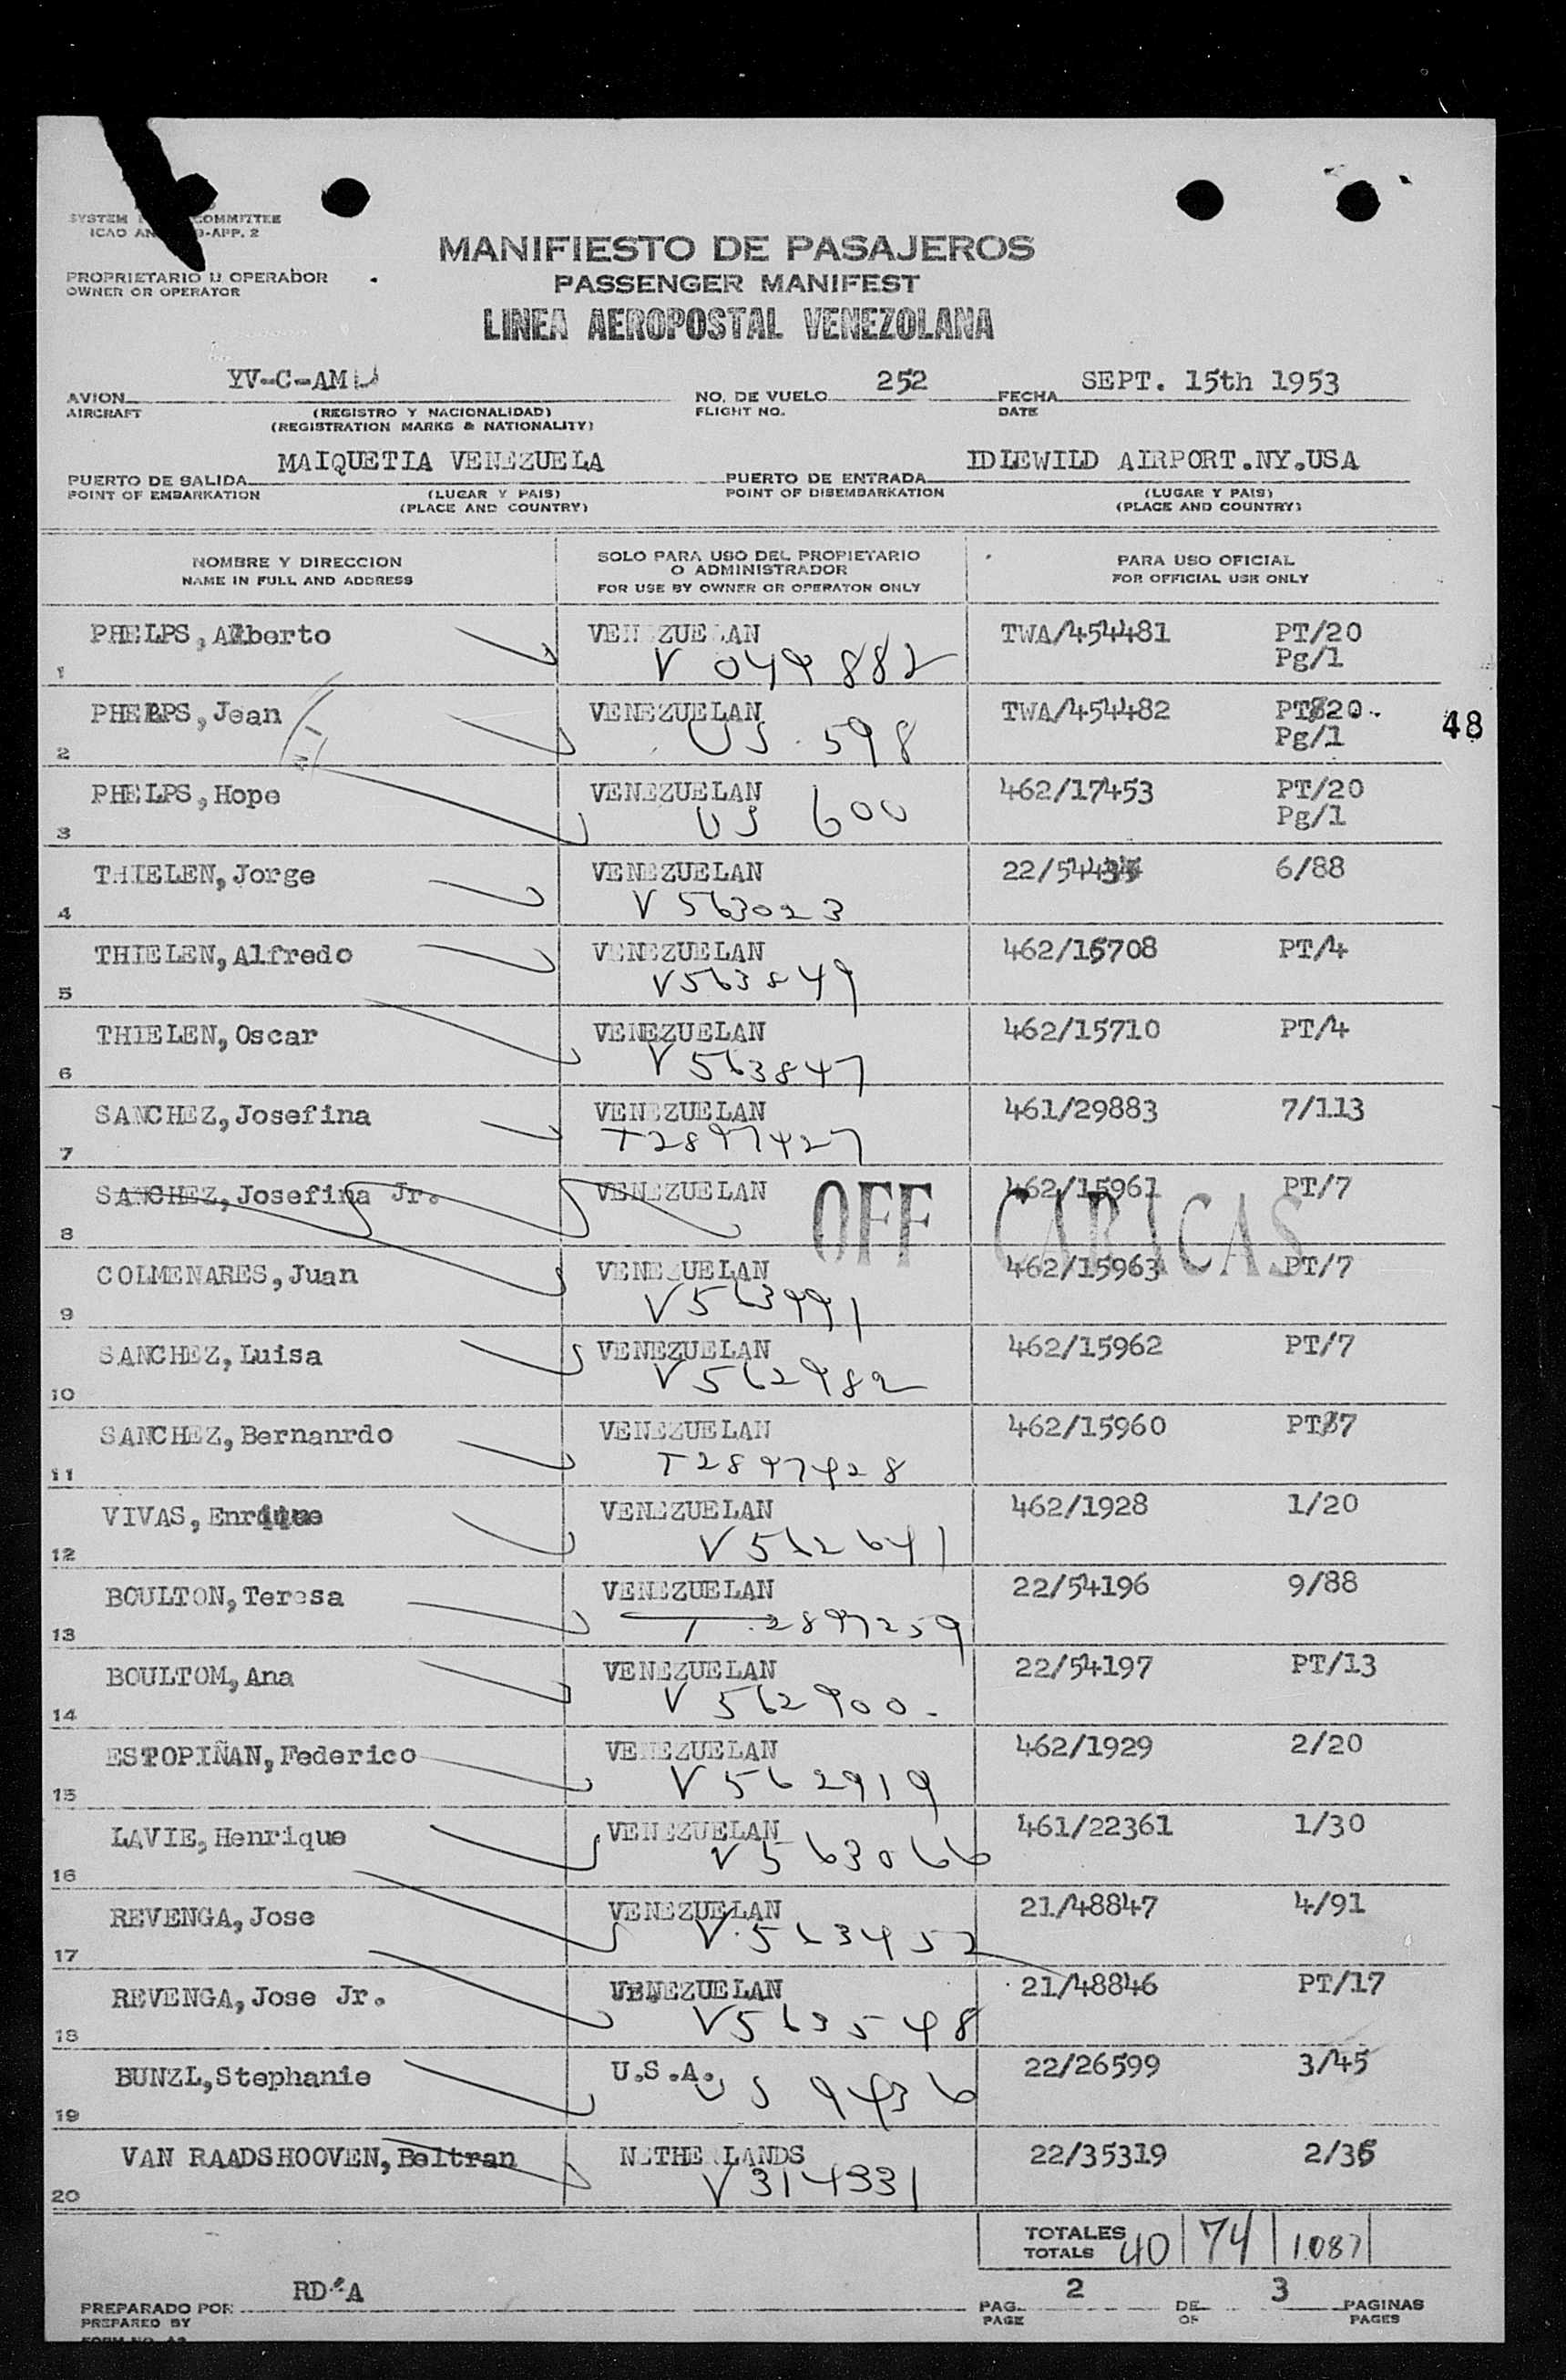 SYSTEM COMMITTEE
ICAO AN 9-APP. 2
PROPRIETARIO U OPERADOR
OWNER OR OPERATOR
MANIFIESTO DE PASAJEROS
PASSENGER MANIFEST
LINEA AEROPOSTAL VENEZOLANA
AVION YV-C-AMD NO. DE VUELO 252 FECHA SEPT. 15th 1953
AIRCRAFT (REGISTRO Y NACIONALIDAD) FLIGHT NO. DATE
(REGISTRATION MARKS & NATIONALITY)
PUERTO DE SALIDA MAIQUETIA VENEZUELA PUERTO DE ENTRADA IDLEWILD AIRPORT.NY.USA
POINT OF EMBARKATION (LUGAR Y PAIS) POINT OF DISEMBARKATION (LUGAR Y PAIS)
(PLACE AND COUNTRY) (PLACE AND COUNTRY)
NOMBRE Y DIRECCION SOLO PARA USO DEL PROPIETARIO O ADMINISTRADOR PARA USO OFICIAL
NAME IN FULL AND ADDRESS FOR USE BY OWNER OR OPERATOR ONLY FOR OFFICIAL USE ONLY
PHELPS, Alberto VENEZUELAN TWA/454481 PT/20
1 V 049882 Pg/1
PHELPS, Jean VENEZUELAN TWA/454482 PT/20
2 US 598 Pg/1 48
PHELPS, Hope VENEZUELAN 462/17453 PT/20
3 US 600 Pg/1
THIELEN, Jorge VENEZUELAN 6/88
4 V 563023
THIELEN, Alfredo VENEZUELAN 462/15708 PT/4
5 V563849
THIELEN, Oscar VENEZUELAN 462/15710 PT/4
6 V 563847
SANCHEZ, Josefina VENEZUELAN 461/29883 7/113
7 T2897427
SANCHEZ, Josefina Jr. VENEZUELAN 462/15961 PT/7
8 OFF CARACAS
COLMENARES, Juan VENEZUELAN 462/15963 PT/7
9 V563991
SANCHEZ, Luisa VENEZUELAN 462/15962 PT/7
10 V562982
SANCHEZ, Bernanrdo VENEZUELAN 462/15960 PT/7
11 T2897428
VIVAS, Enrique VENEZUELAN 462/1928 1/20
12 V562641
BOULTON, Teresa VENEZUELAN 22/54196 9/88
13 T 2897259
BOULTOM, Ana VENEZUELAN 22/54197 PT/13
14 V 562900
ESTOPIÑAN, Federico VENEZUELAN 462/1929 2/20
15 V 562919
LAVIE, Henrique VENEZUELAN 461/22361 1/30
16 V563066
REVENGA, Jose VENEZUELAN 21/48847 4/91
17 V.563452
REVENGA, Jose Jr. VENEZUELAN 21/48846 PT/17
18 V563548
BUNZL, Stephanie U.S.A. 22/26599 3/45
19 US 9436
VAN RAADSHOOVEN, Beltran NETHERLANDS 22/35319 2/36
20 V314331
TOTALES 40 74 1087
TOTALS
PREPARADO POR RD A PAG. 2 DE 3 PAGINAS
PREPARED BY PAGE OF PAGES